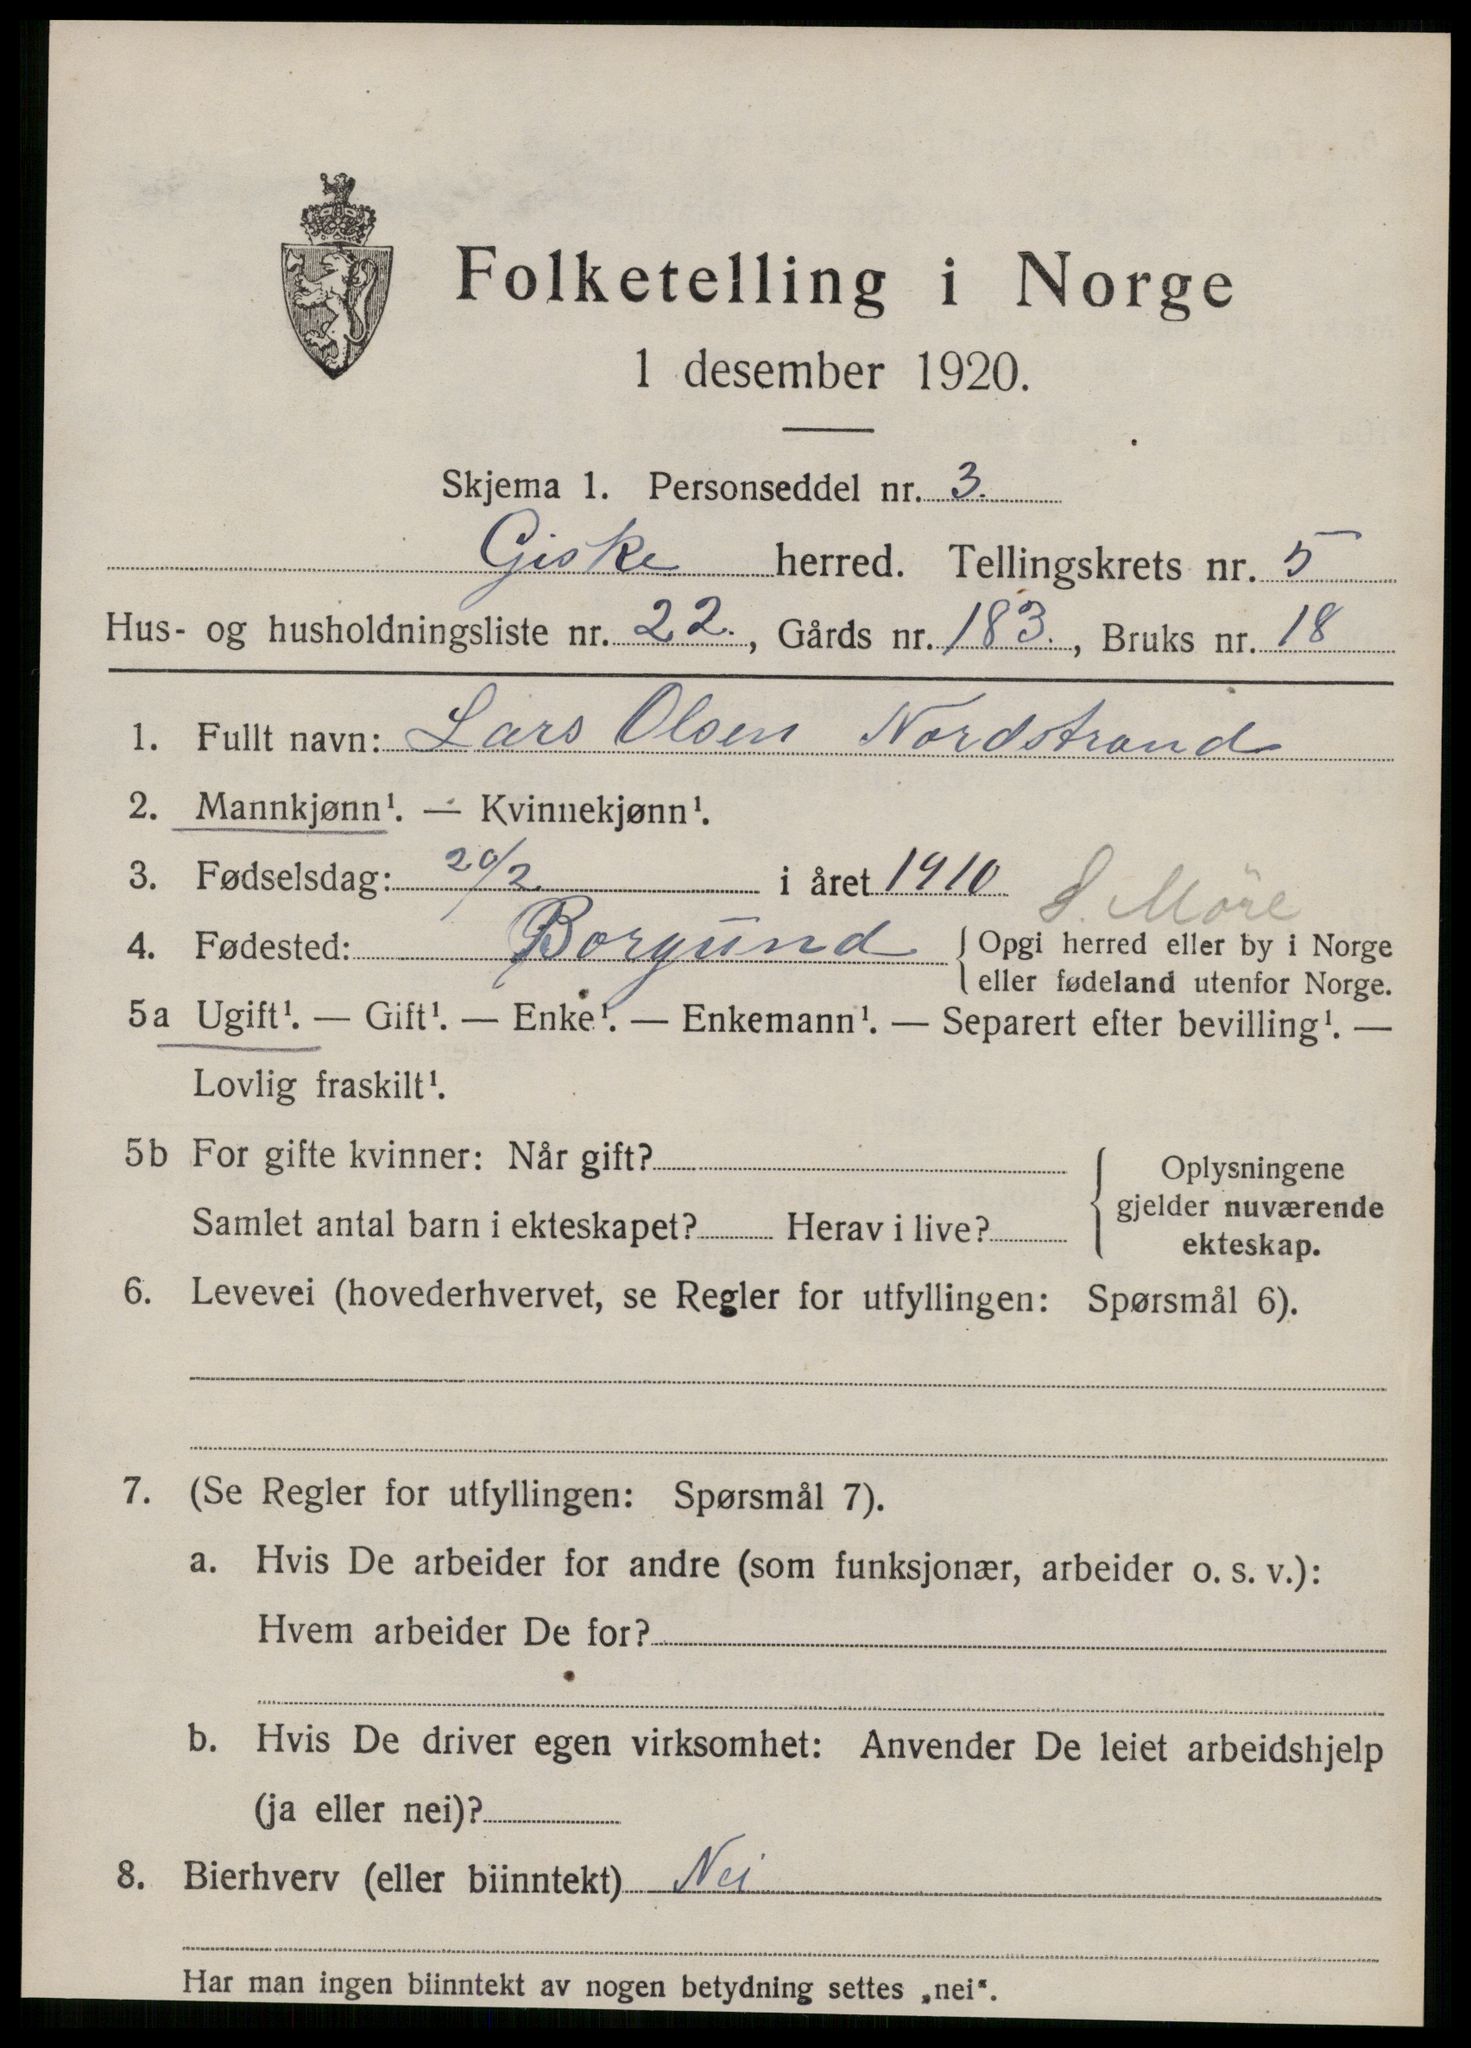 Folketelling i Norge
1 desember 1920.
Skjema 1. Personseddel nr. 3.
Giske herred. Tellingskrets nr. 5
Hus- og husholdningsliste nr. 22., Gårds nr. 183., Bruks nr. 18
1. Fullt navn: Lars Olsen Nordstrand
2. Mannkjønn¹. — Kvinnekjønn¹.
3. Fødselsdag: 20/2 i året 1910
S. Möre
4. Fødested: Borgund { Opgi herred eller by i Norge
eller fødeland utenfor Norge.
5a Ugift¹. — Gift¹. — Enke¹. — Enkemann¹. — Separert efter bevilling¹. —
Lovlig fraskilt¹.
5b For gifte kvinner: Når gift?
Samlet antal barn i ekteskapet? Herav i live?
{ Oplysningene
gjelder nuværende
ekteskap.
6. Levevei (hovederhvervet, se Regler for utfyllingen: Spørsmål 6).
7. (Se Regler for utfyllingen: Spørsmål 7).
a. Hvis De arbeider for andre (som funksjonær, arbeider o. s. v.):
Hvem arbeider De for?
b. Hvis De driver egen virksomhet: Anvender De leiet arbeidshjelp
(ja eller nei)?
8. Bierhverv (eller biinntekt) Nei
Har man ingen biinntekt av nogen betydning settes „nei“.